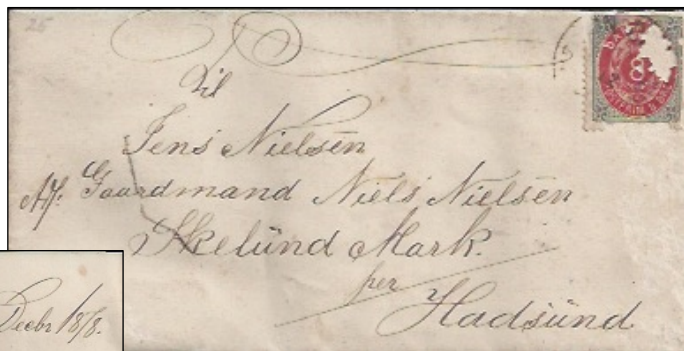 25
Til
Jens Nielsen
Adr: Gaardmand Niels Nielsen
Skelünd Mark.
per
Hadsünd
8
Decbr 18/8.